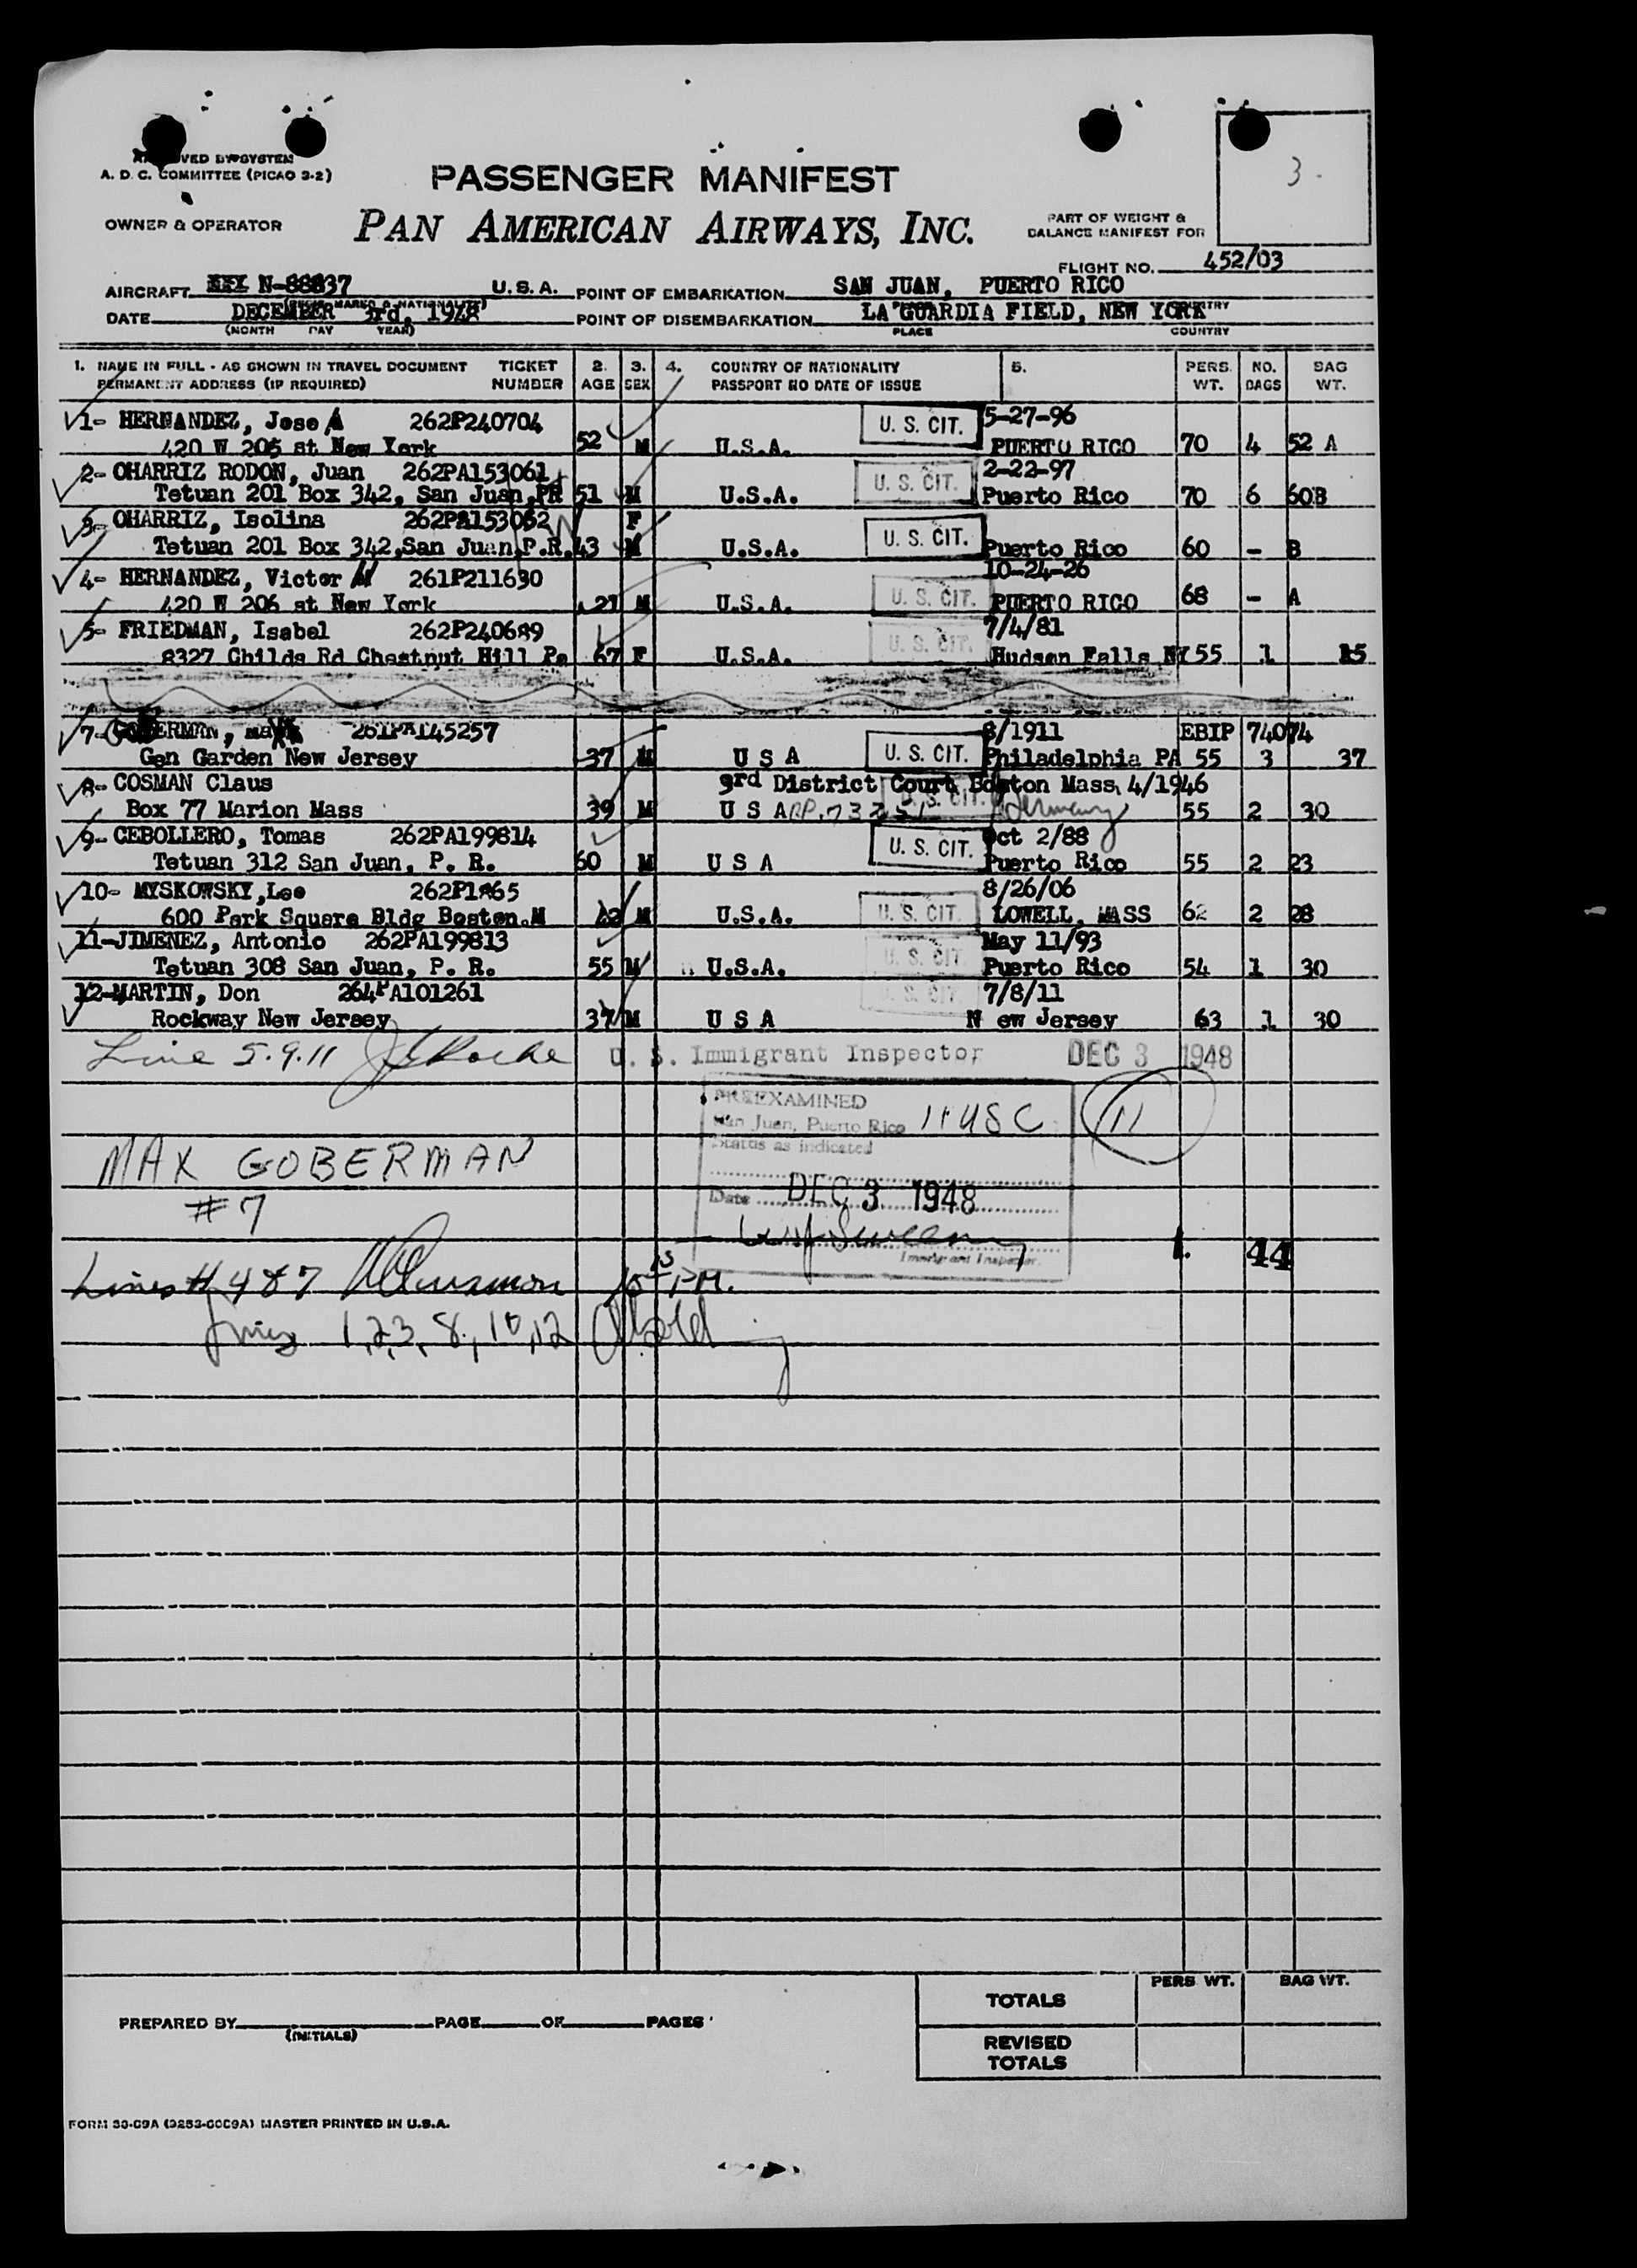 3.
APPROVED BY SYSTEM
A. D. C. COMMITTEE (PICAO 3-2)
PASSENGER MANIFEST
OWNER & OPERATOR
PAN AMERICAN AIRWAYS, INC.
PART OF WEIGHT &
BALANCE MANIFEST FOR
FLIGHT NO. 452/03
AIRCRAFT N-88837 U.S.A. POINT OF EMBARKATION SAN JUAN, PUERTO RICO
DATE DECEMBER 3rd, 1948 POINT OF DISEMBARKATION LA GUARDIA FIELD, NEW YORK
(MONTH DAY YEAR) PLACE COUNTRY
1. NAME IN FULL - AS SHOWN IN TRAVEL DOCUMENT TICKET 2. 3. 4. COUNTRY OF NATIONALITY 5. PERS. NO. BAG
PERMANENT ADDRESS (IF REQUIRED) NUMBER AGE SEX PASSPORT NO DATE OF ISSUE WT. BAGS WT.
1- HERNANDEZ, Jose A 262P240704 U. S. CIT. 5-27-96
420 W 206 st New York 52 M U.S.A. PUERTO RICO 70 4 52 A
2- OHARRIZ RODON, Juan 262PA153061 U. S. CIT. 2-22-97
Tetuan 201 Box 342, San Juan,PR 51 M U.S.A. Puerto Rico 70 6 60B
3- OHARRIZ, Isolina 262PA153062 F U. S. CIT.
Tetuan 201 Box 342,San Juan,P.R. 43 M U.S.A. Puerto Rico 60 - B
4- HERNANDEZ, Victor M 261P211630 U. S. CIT. 10-24-26
420 W 206 st New York 21 M U.S.A. PUERTO RICO 68 - A
5- FRIEDMAN, Isabel 262P240689 U. S. CIT. 7/4/81
8327 Childs Rd Chestnut Hill Pa 67 F U.S.A. Hudson Falls NY 55 1 15
7- GOBERMAN, Max 261PA145257 8/1911 EBIP 74074
Gen Garden New Jersey 37 M U S A U. S. CIT. Philadelphia PA 55 3 37
8- COSMAN Claus 3rd District Court Boston Mass, 4/1946
Box 77 Marion Mass 39 M U S A U. S. CIT. Germany 55 2 30
9- CEBOLLERO, Tomas 262PA199814 U. S. CIT. Oct 2/88
Tetuan 312 San Juan, P. R. 60 M U S A Puerto Rico 55 2 23
10- MYSKOWSKY,Lee 8/26/06
600 Park Square Bldg Boston.M 42 M U.S.A. U. S. CIT. LOWELL, MASS 62 2 28
11-JIMENEZ, Antonio 262PA199813 U. S. CIT. May 11/93
Tetuan 308 San Juan, P. R. 55 M U.S.A. Puerto Rico 54 1 30
12-MARTIN, Don 264PA101261 U. S. CIT. 7/8/11
Rockway New Jersey 37 M U S A N ew Jersey 63 1 30
Line 5.9.11 U. S. Immigrant Inspector DEC 3 1948
PREEXAMINED
San Juan, Puerto Rico 11 USC 11
Status as indicated
MAX GOBERMAN
#7
Date DEC 3 1948
Immigrant Inspector.
1. 44
Lines # 4 & 7 PM.
Lines 1,2,3, 8, 10, 12
PERS WT. BAG WT.
TOTALS
PREPARED BY PAGE OF PAGES
(INITIALS)
REVISED
TOTALS
MASTER PRINTED IN U.S.A.